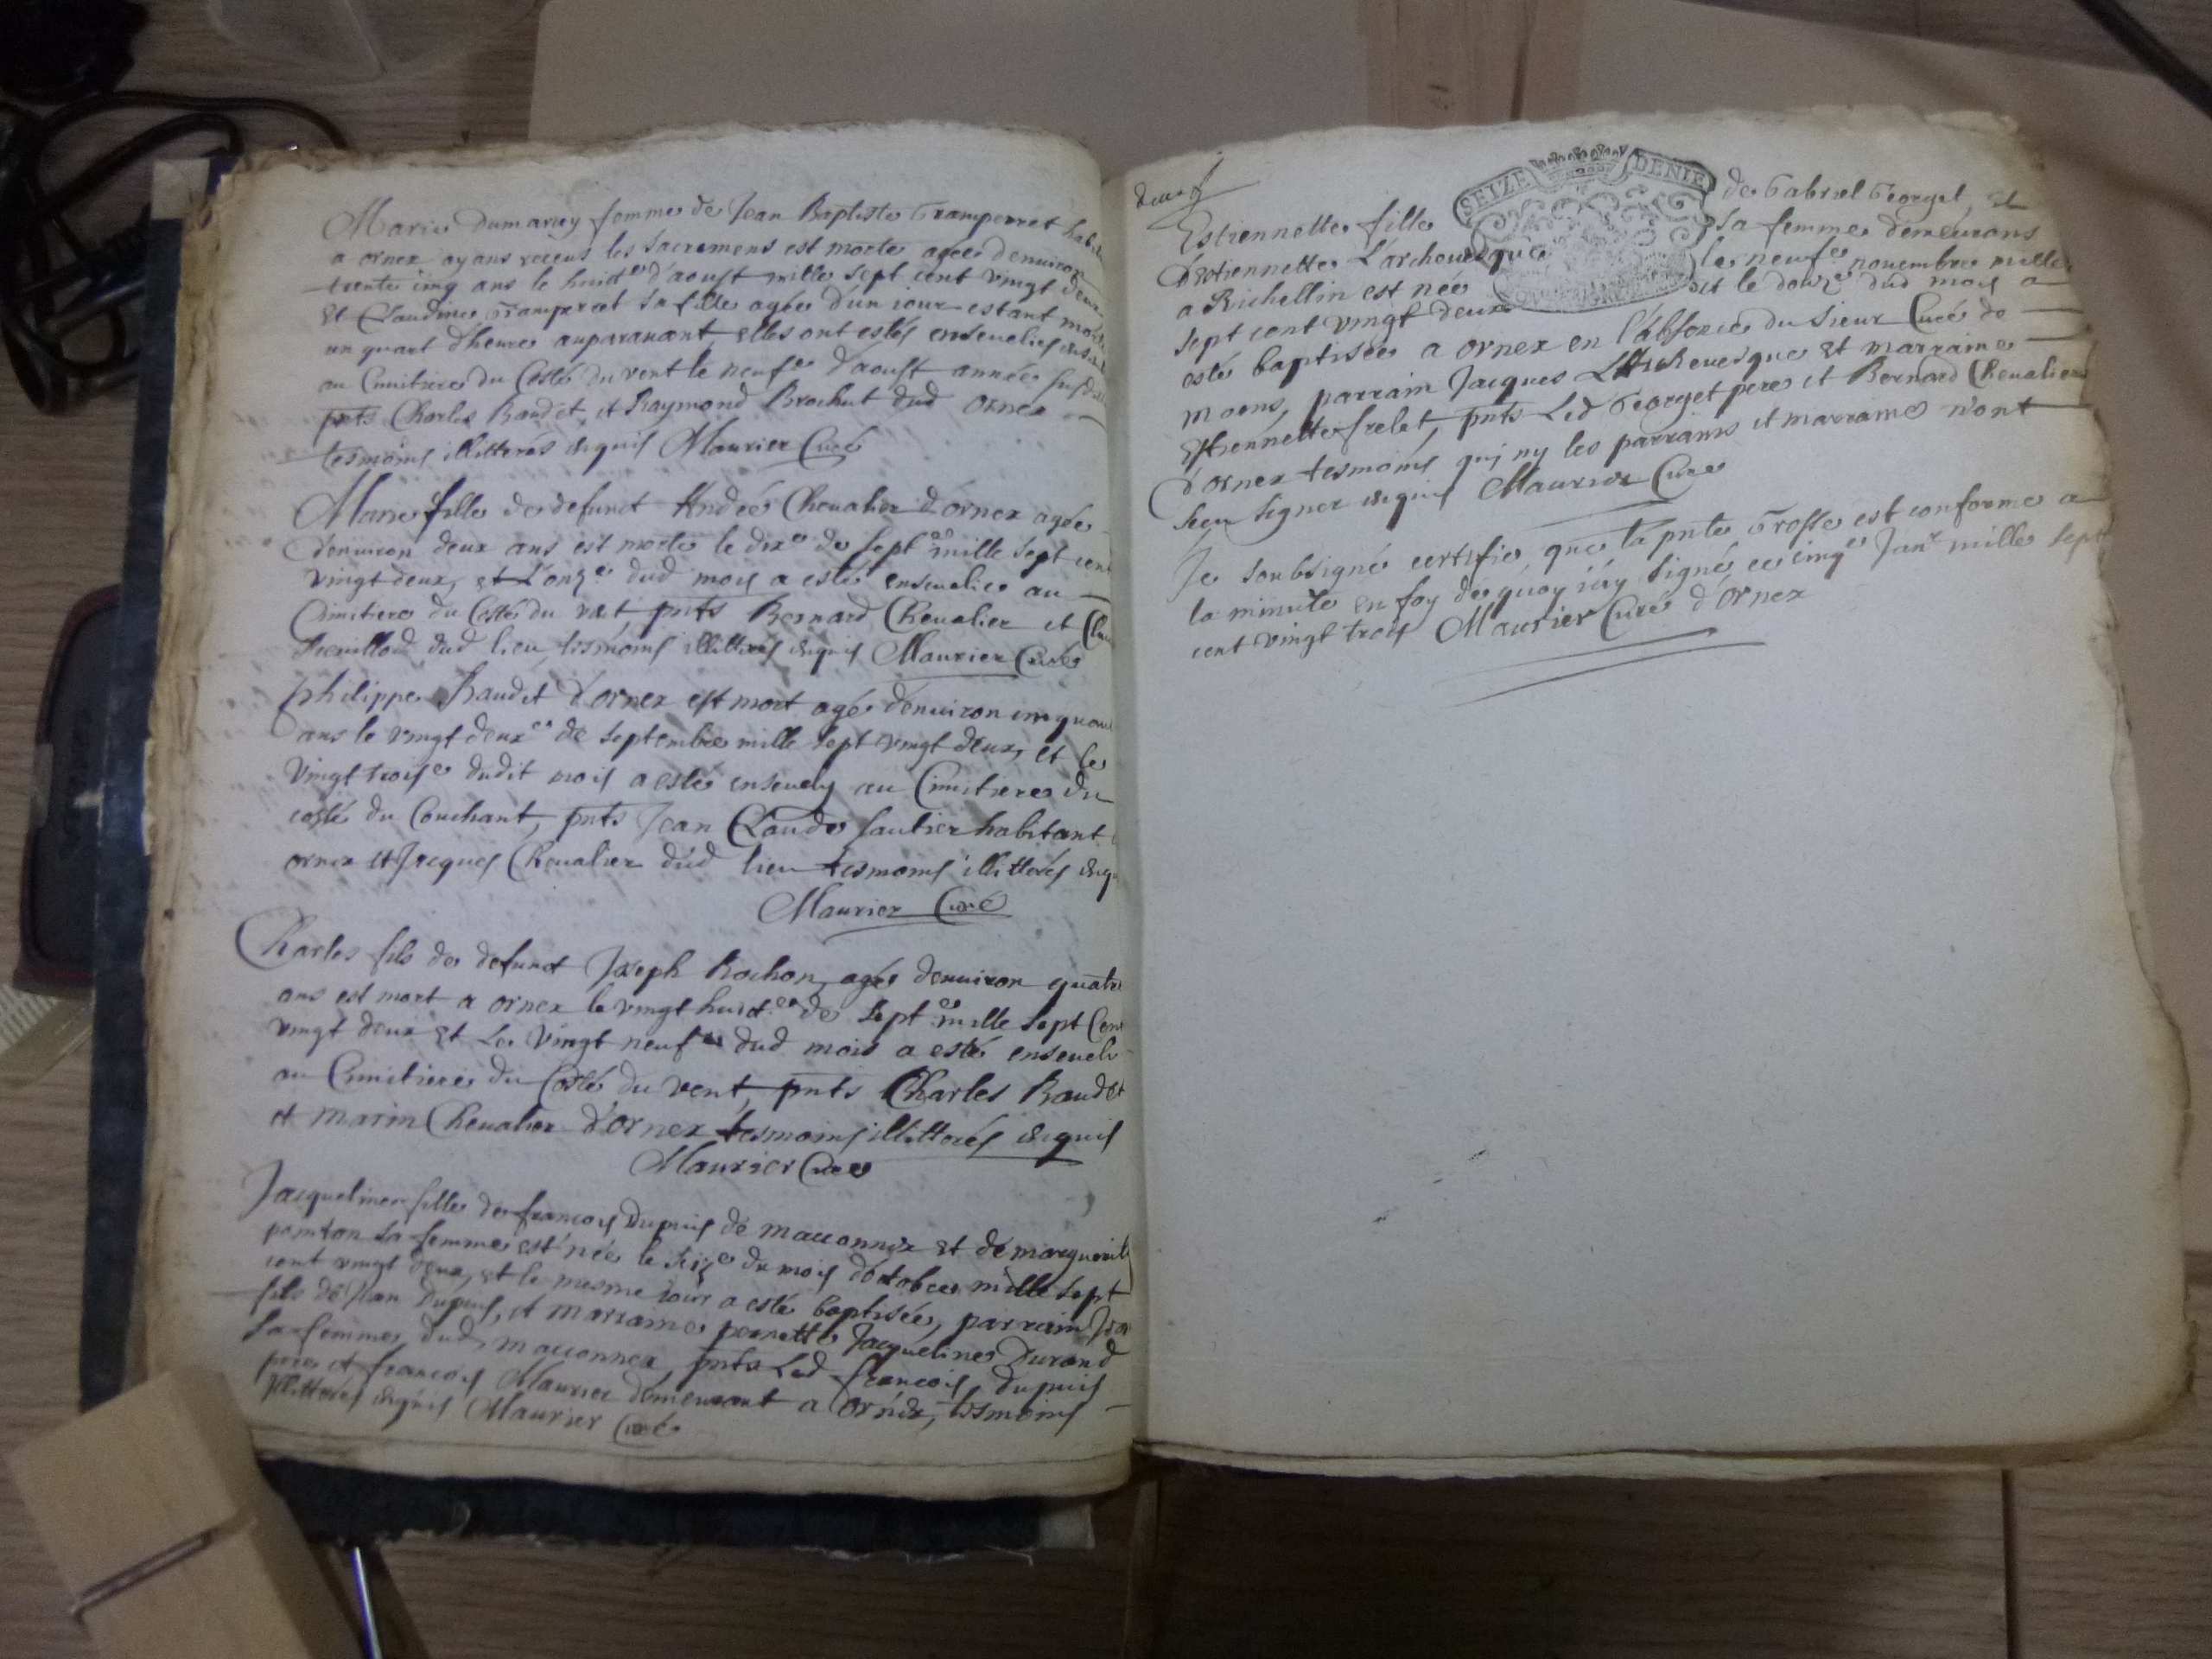 Marie Dumarcey femme de Jean Baptiste Gramperret
a ornex ayans receus les sacremens est morte agée denuiron
trente cinq ans le huict.e d'aoust mille sept cent vingt deux
Et Claudine Gramperret sa fille agée d'un iour estant morte
un quart d'heure auparauant, elles ont estés enseuelies
au Cimitiere du Costé du vent le neuf.e d'aoust année susditte
pnts Charles Baudet, et Raymond Brochut dud ornex
tesmoins illitterés requis Maurier Curé
Marie fille de defunct André Cheualier d'ornex agée
denuiron deux ans est morte le dix.e de sept.re mille sept cent
vingt deux, et L'onz.e dud mois a esté enseuelie au
Cimitiere du Costé du vent, pnts Bernard Cheualier et
dud lieu tesmoins illitterés requis Maurier Curé
philippe Baudet d'ornex est mort agé denuiron cinquante
ans le vingt deux.e de septembre mille sept vingt deux, et le
vingt trois.e dudit mois a esté enseuely au Cimitiere du
costé du Couchant, pnts Jean Claude sautier habitant
ornex et Jacques Cheualier dud lieu tesmoins illitterés
Maurier Curé
Charles fils de defunct Joseph Rochon, agé denuiron quatre
ans est mort a ornex le vingt huict.e de sept.re mille sept Cent
vingt deux Et Le vingt neuf.e dud mois a esté enseueli
au Cimitiere du Costé du vent, pnts Charles Baudet
et marin Cheualier d'ornex tesmoins illitterés requis
Maurier Curé
Jacqueline fille de francois Dupuis de maconnex et de marguerite
ponton sa femme est née le seiz.e du mois d'octobre mille sept
cent vingt deux, et le mesme iour a esté baptisée, parrain
fils de Jean Dupuis, et marraine pernette Jacqueline Durand
sa femme dud maconnex, pnts Led francois dupuis
pere et francois Maurier demeurant a Ornex, tesmoins
illitterés requis Maurier Curé
SEIZE DENIE
Estiennette fille de Gabriel Georget, Et
d'Estiennette L'archeuesque sa femme demeurans
a Richellin est née le neuf.e nouembre mille
sept cent vingt deux et le douz.e dud mois a
esté baptisée a ornex en l'absence du sieur Curé de
moens, parrain Jacques L'Archeuesque et marraine
Estiennette frelet, pnts Led Georget pere et Bernard Cheualier
d'ornex tesmoins qui ny les parrains et marraine n'ont
sceu signer requis Maurier Curé
Je soubsigné certifie, que la pnte Grosse est conforme a
la minute en foy de quoy i'ay signé ce cinq.e Jan.r mille sept
cent vingt trois Maurier Curé d'Ornex